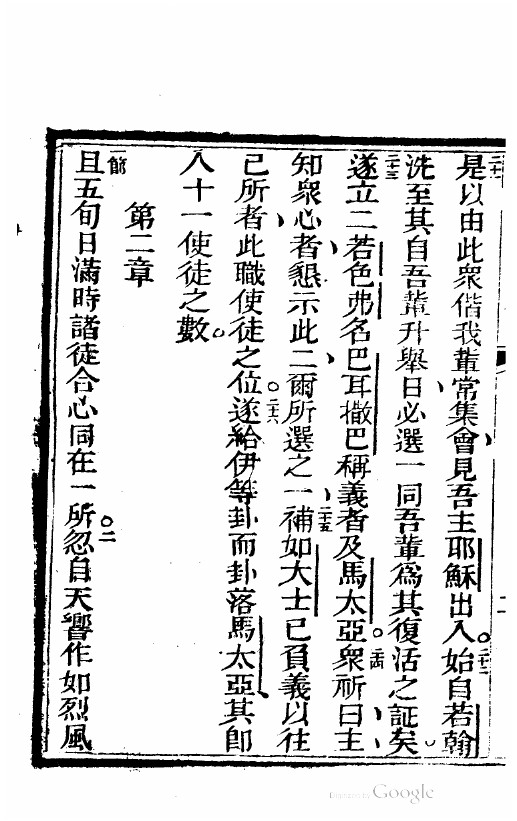 二十一是以由此衆偕我輩常集會、見吾主耶穌出入。二十二始自若翰
洗至其自吾輩升舉日、必選一同吾輩爲其復活之証矣。
二十三遂立二、若色弗名巴耳撒巴稱義者及馬太亞。二十四衆祈曰、主、
知衆心者、懇示此二、爾所選之一、二十五補如大士已負義以往
己所者、此職使徒之位。二十六遂給伊等卦而卦落馬太亞、其卽
入十一使徒之數。
第二章
一節且五旬日滿時諸徒合心同在一所。二忽自天響作如烈風
Digitized by Google